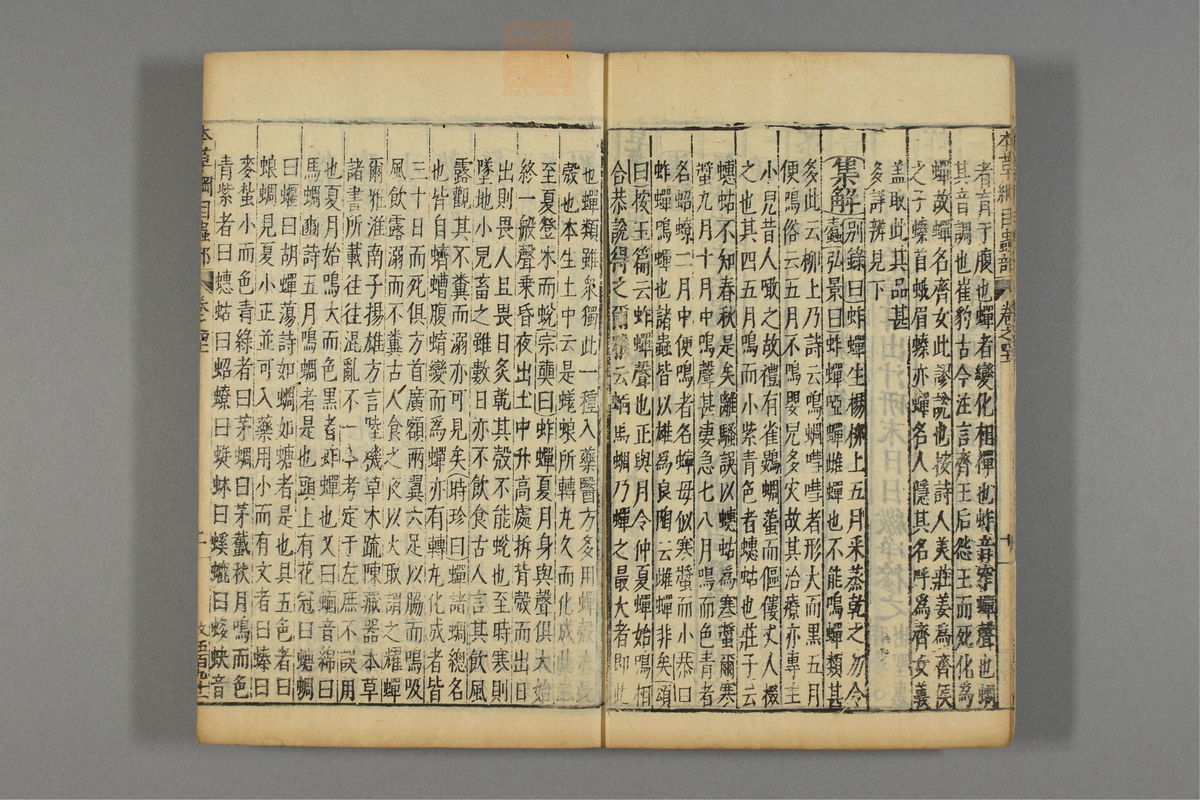 者育于腹也蟬者變化相禪也蚱音窄蟬聲也蜩
其音調也崔豹古今注言齊王后怨王而死化爲
蟬故蟬名齊女此謬說也按詩人美莊姜爲齊侯
之子螓首蛾眉螓亦蟬名人隱其名呼爲齊女義
蓋取此其品甚
多詳辨見下
集解别錄曰蚱蟬生楊柳上五月采蒸乾之勿令
蠹弘景曰蚱蟬啞蟬雌蟬也不能鳴蟬類甚
多此云柳上乃詩云鳴蜩嘒嘒者形大而黑五月
便鳴俗云五月不鳴嬰兒多灾故其治療亦專主
小兒昔人噉之故禮有雀鷃蜩䖼而傴僂丈人掇
之也其四五月鳴而小紫青色者蟪蛄也莊子云
蟪蛄不知春秋是矣離騷誤以蟪蛄爲寒螿爾寒
螿九月十月中鳴聲甚凄急七八月鳴而色青者
名蛁蟟二月中便鳴者名蟬母似寒螿而小恭曰
蚱蟬鳴蟬也諸蟲皆以雄爲良陶云雌蟬非矣頌
曰按玉篇云蚱蟬聲也正與月令仲夏蟬始鳴相
合恭說得之爾雅云蝒馬蜩乃蟬之最大者即此
也蟬類雖衆獨此一種入藥醫方多用蟬殼
殼也本生土中云是蜣蜋所轉丸久而化成此
至夏登木而蛻宗奭曰蚱蟬夏月身與聲俱大始
終一般聲乘昏夜出土中升高處拆背殼而出日
出則畏人且畏日炙乾其殼不能蛻也至時寒則
墜地小兒畜之雖數日亦不飲食古人言其飲風
露觀其不糞而溺亦可見矣時珍曰蟬諸蜩總名
也皆自蠐螬腹蜟變而爲蟬亦有轉丸化成者皆
三十日而死俱方首廣額兩翼六足以脇而鳴吸
風飲露溺而不糞古人食之夜以火取謂之耀蟬
爾雅淮南子揚雄方言陸機草木疏陳藏器本草
諸書所載往往混亂不一今考定于左庶不誤用
也夏月始鳴大而色黑者蚱蟬也又曰蝒音綿曰
馬蜩豳詩五月鳴蜩者是也頭上有花冠曰螗蜩
曰蝘曰胡蟬蕩詩如蜩如螗者是也具五色者曰
蜋蜩見夏小正並可入藥用小而有文者曰螓曰
麥蚻小而色青綠者曰茅蜩曰茅蠽秋月鳴而色
青紫者曰蟪蛄曰蛁蟟曰蜓蚞曰螇螰曰蛥蚗音